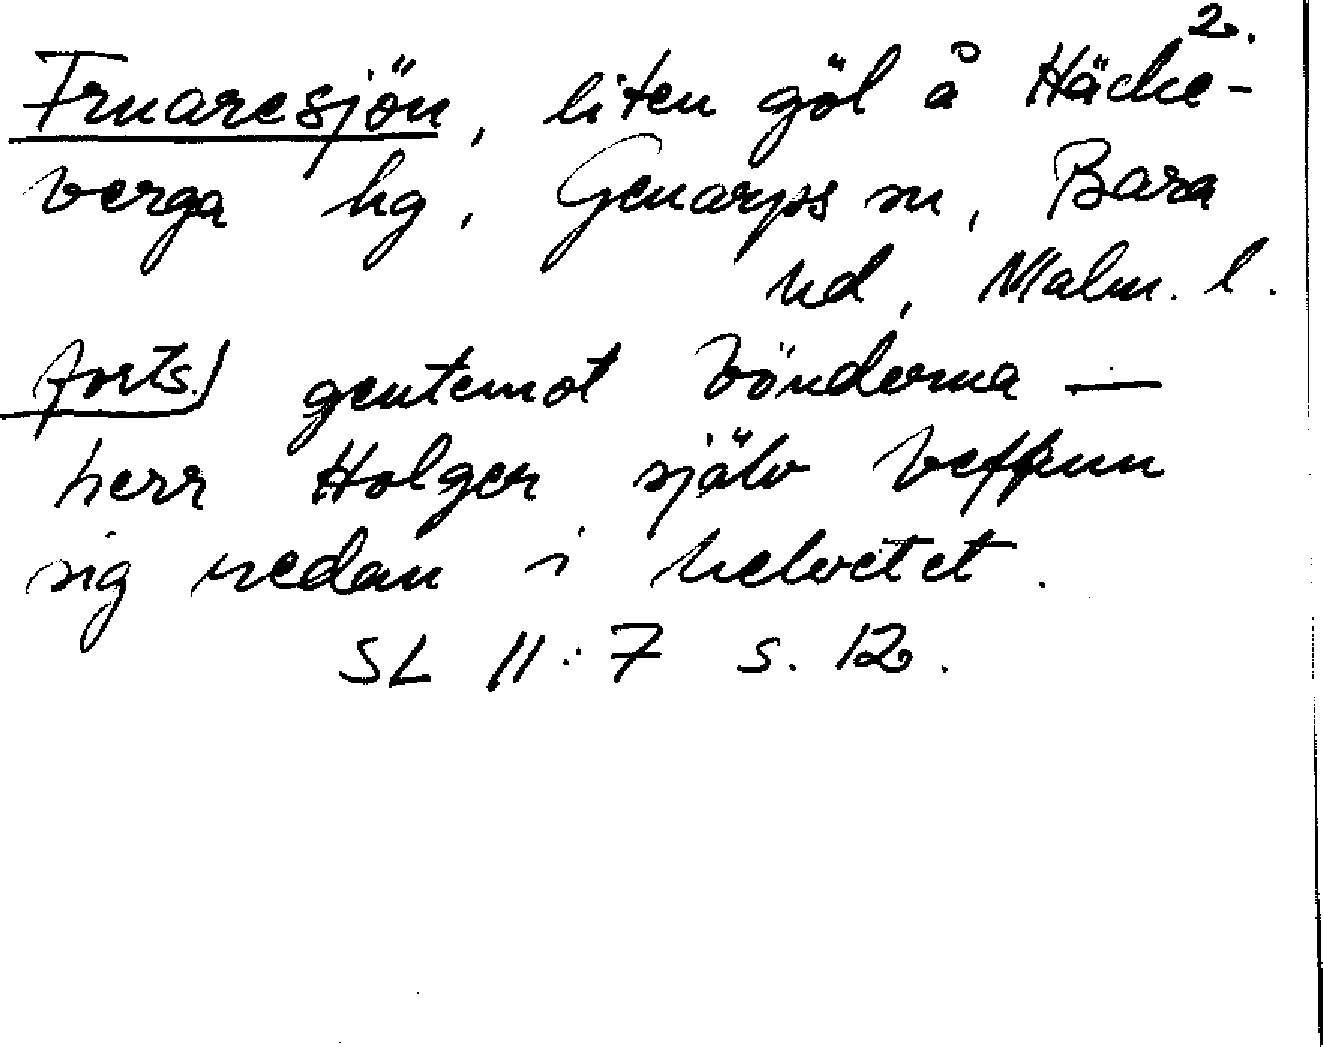 2.
Fruaresjön, liten göl å Häcke-
berga hg, Genarps sn, Bara
hd, Malm. l.
forts.) gentemot bönderna —
herr Holger själv beffunn
sig redan i helvetet.
SL 11:7 s. 12.